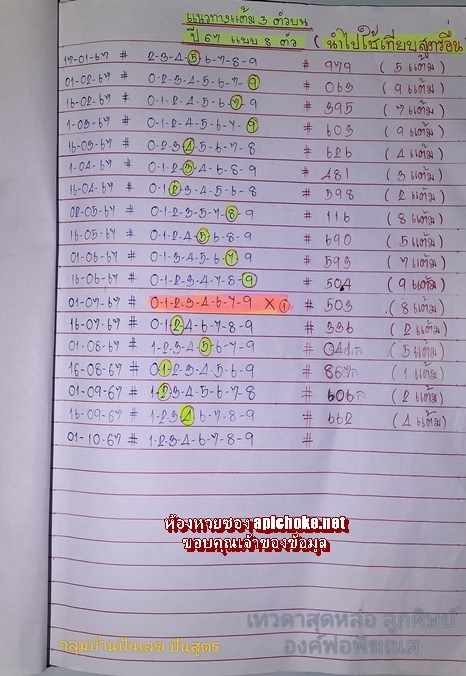 แนวทางแต้ม 3 ตัวบน
ปี 67 แบบ 8 ตัว (นำไปใช้เทียบสูตรอื่น
17-01-67 # 2-3-4-5-6-7-8-9 # 979 (5 แต้ม)
01-02-67 # 0-2-3-4-5-6-7-9 # 063 (9 แต้ม)
16-02-67 # 0-1-2-4-5-6-7-9 # 395 (7 แต้ม)
1-03-67 # 0-1-3-4-5-6-7-9 # 603 (9 แต้ม)
16-03-67 # 0-2-3-4-5-6-7-8 # 626 (4 แต้ม)
1-04-67 # 0-2-3-4-5-6-8-9 # 481 (3 แต้ม)
16-04-67 # 0-1-2-3-4-5-6-8 # 598 (2 แต้ม)
02-05-67 # 0-1-2-3-5-7-8-9 # 116 (8 แต้ม)
16-05-67 # 0-1-2-4-5-6-8-9 # 690 (5 แต้ม)
01-06-67 # 0-1-3-4-5-6-7-9 # 593 (7 แต้ม)
16-06-67 # 0-1-2-3-4-7-8-9 # 504 (9 แต้ม)
01-07-67 # 0-1-2-3-4-6-7-9 X ① # 503 (8 แต้ม)
16-07-67 # 0-1-2-4-6-7-8-9 # 336 (2 แต้ม)
01-08-67 # 1-2-3-4-5-6-7-9 # 041 (5 แต้ม)
16-08-67 # 0-1-2-3-4-5-6-9 # 867 (1 แต้ม)
01-09-67 # 1-2-3-4-5-6-7-8 # 606 (2 แต้ม)
16-09-67 # 1-2-3-4-6-7-8-9 # 662 (4 แต้ม)
01-10-67 # 1-2-3-4-6-7-8-9 #
ห้องหวยซอง apichoke.net
ขอบคุณเจ้าของข้อมูล
เทวดาสุดหล่อ ลูกศิษย์
องค์พ่อพิฆเนส
กลุ่มบ้านปันเลข ปันสูตร